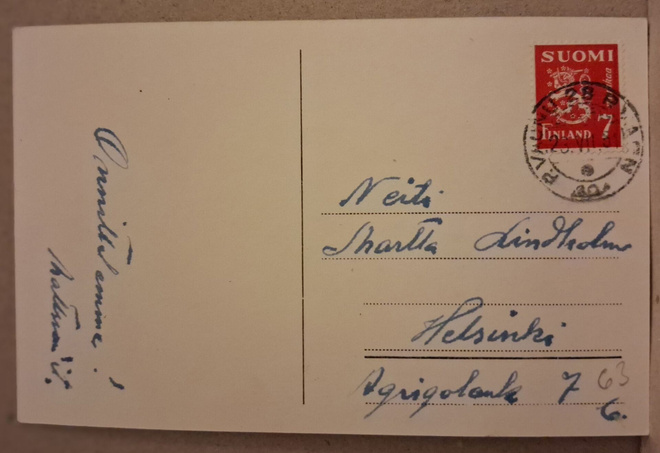 Onnittelemme!
SUOMI
FINLAND 7
Neiti
Martta Lindholm
Helsinki
Agrigolank 7 63
6.